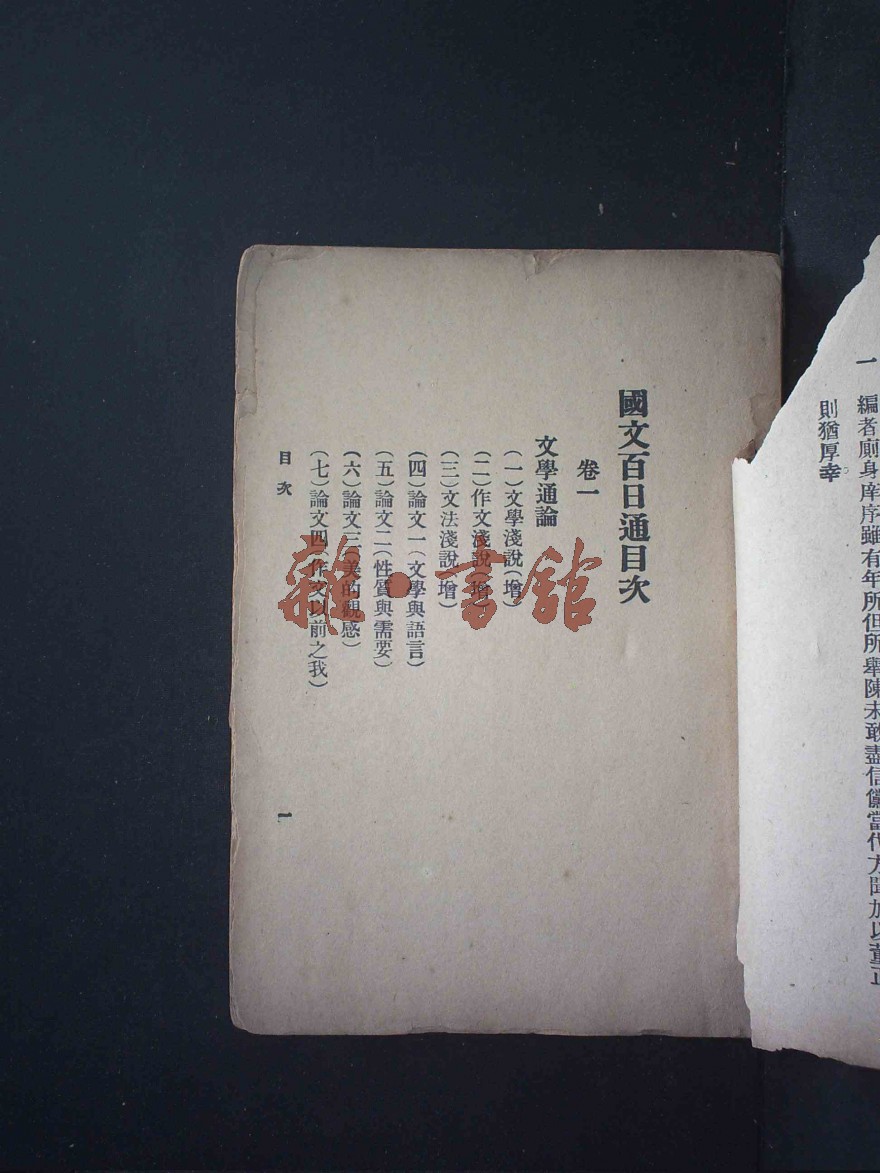 一　編者廁身庠序雖有年所但所舉陳未敢盡信儻當代方聞加以董正
則猶厚幸。
國文百日通目次
卷一
文學通論
(一)文學淺說(增)
(二)作文淺說(增)
(三)文法淺說(增)
(四)論文一(文學與語言)
(五)論文二(性質與需要)
(六)論文三(美的觀感)
(七)論文四(作文以前之我)
目次
一
雜·書館